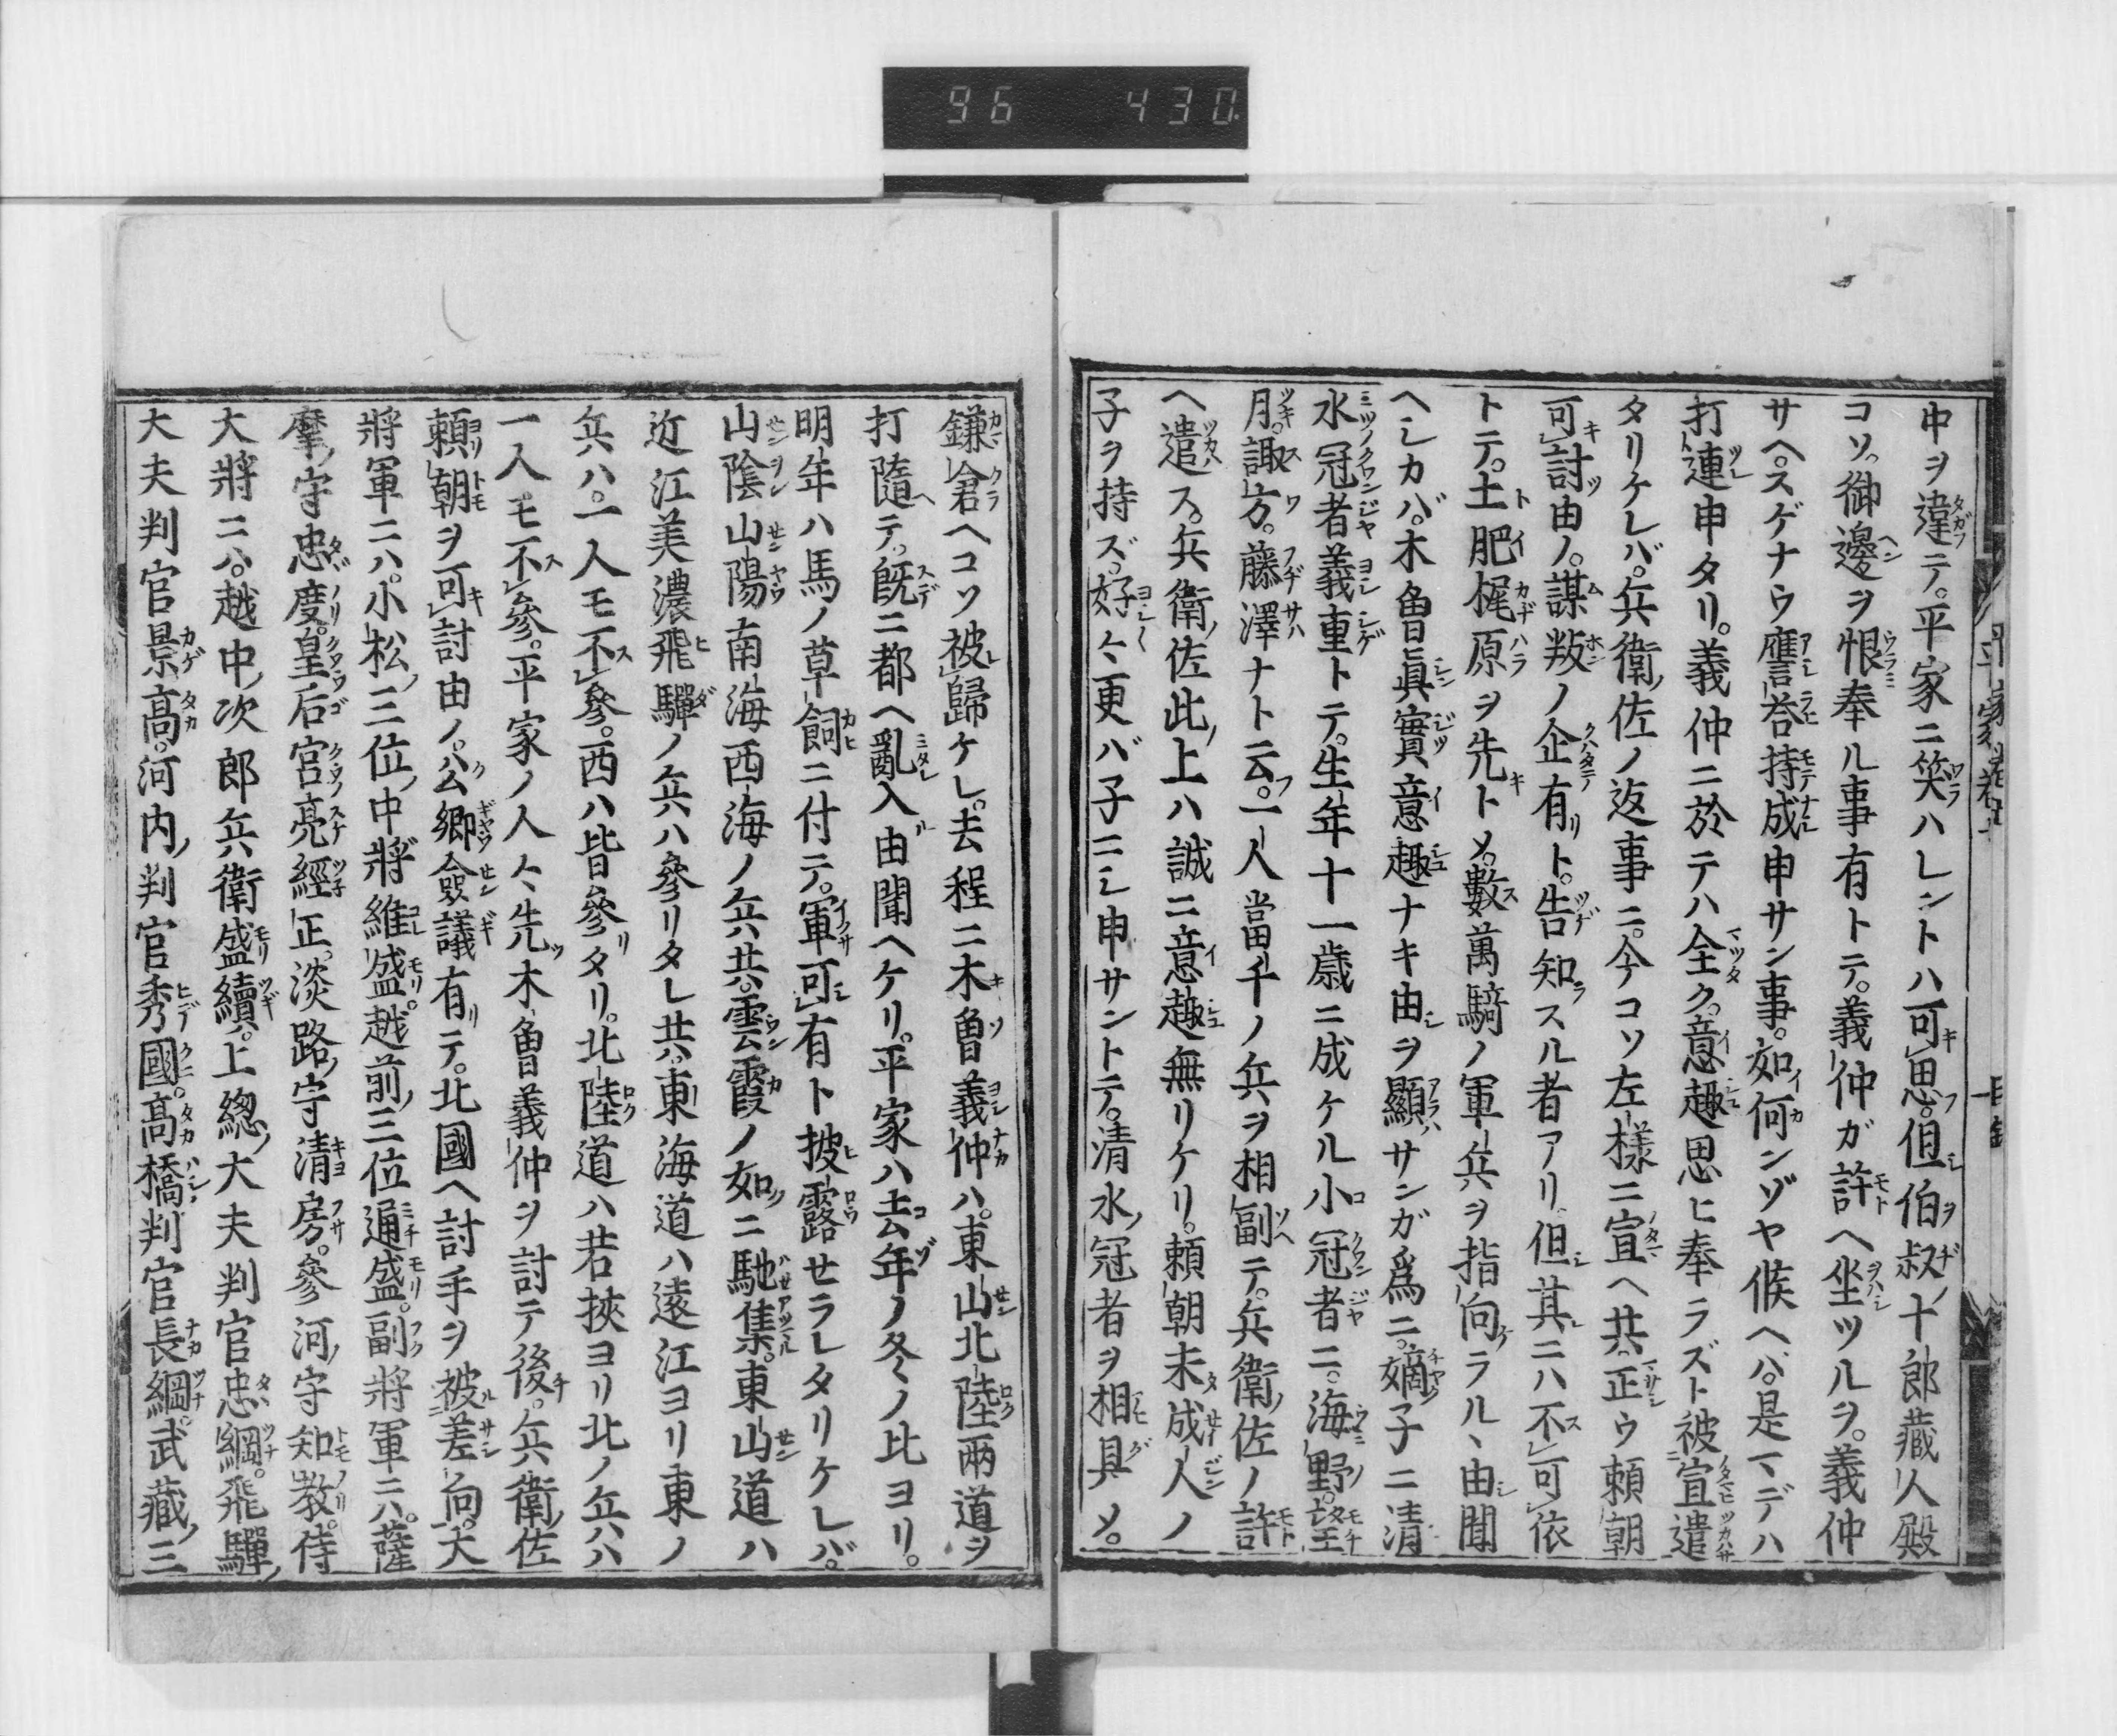 96 430
申ヲ違テ。平家ニ笑ハレントハ可思。但伯叔ノ十郎藏人殿
コソ。御邊ヲ恨奉ル事有トテ。義仲ガ許ヘ坐ツルヲ。義仲
サヘ。スゲナウ應答持成申サン事。如何ンゾヤ候ヘハ。是マデハ
打連申タリ。義仲ニ於テハ全ク。意趣思ヒ奉ラズト被宣遣
タリケレバ。兵衛ノ佐ノ返事ニ。今コソ左様ニ宣ヘ共。正ウ頼朝
可討由ノ。謀叛ノ企有ト。告知スル者アリ。但其ニハ不可依
トテ。土肥梶原ヲ先トメ。數萬騎ノ軍兵ヲ指向ラルヽ由聞
ヘシカバ。木曾眞實意趣ナキ由ヲ顯サンガ爲ニ。嫡子ニ清
水冠者義重トテ。生年十一歳ニ成ケル小冠者ニ。海野。望
月。諏方。藤澤ナト云。一人當千ノ兵ヲ相副テ。兵衛ノ佐ノ許
ヘ遣ス。兵衛ノ佐此ノ上ハ誠ニ意趣無リケリ。頼朝未成人ノ
子ヲ持ズ。好々更バ子ニシ申サントテ。清水ノ冠者ヲ相具メ。
鎌倉ヘコソ被歸ケレ。去程ニ木曾義仲ハ。東山北陸兩道ヲ
打隨テ。既ニ都ヘ亂入由聞ヘケリ。平家ハ去年ノ冬ノ比ヨリ。
明年ハ馬ノ草飼ニ付テ。軍可有ト披露セラレタリケレバ。
山陰山陽南海西海ノ兵共。雲霞ノ如ニ馳集。東山道ハ
近江美濃飛驒ノ兵ハ參リタレ共。東海道ハ遠江ヨリ東ノ
兵ハ。一人モ不參。西ハ皆參タリ。北陸道ハ若狹ヨリ北ノ兵ハ
一人モ不參。平家ノ人々先木曾義仲ヲ討テ後。兵衛ノ佐
頼朝ヲ可討由ノ。公卿僉議有テ。北國ヘ討手ヲ被差向。大
將軍ニハ。小松ノ三位ノ中將維盛。越前ノ三位通盛。副將軍ニハ。薩
摩ノ守忠度。皇后宮亮經正。淡路ノ守清房。參河ノ守知教。侍
大將ニハ。越中ノ次郎兵衛盛續。上總ノ大夫判官忠綱。飛驒ノ
大夫判官景高。河内ノ判官秀國。高橋判官長綱。武藏ノ三